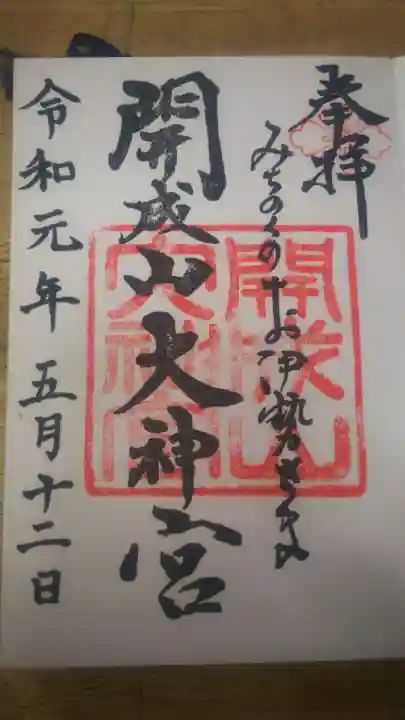 奉拝
みちのくのお伊勢さま
開成山大神宮
令和元年五月十二日
開成山大神宮